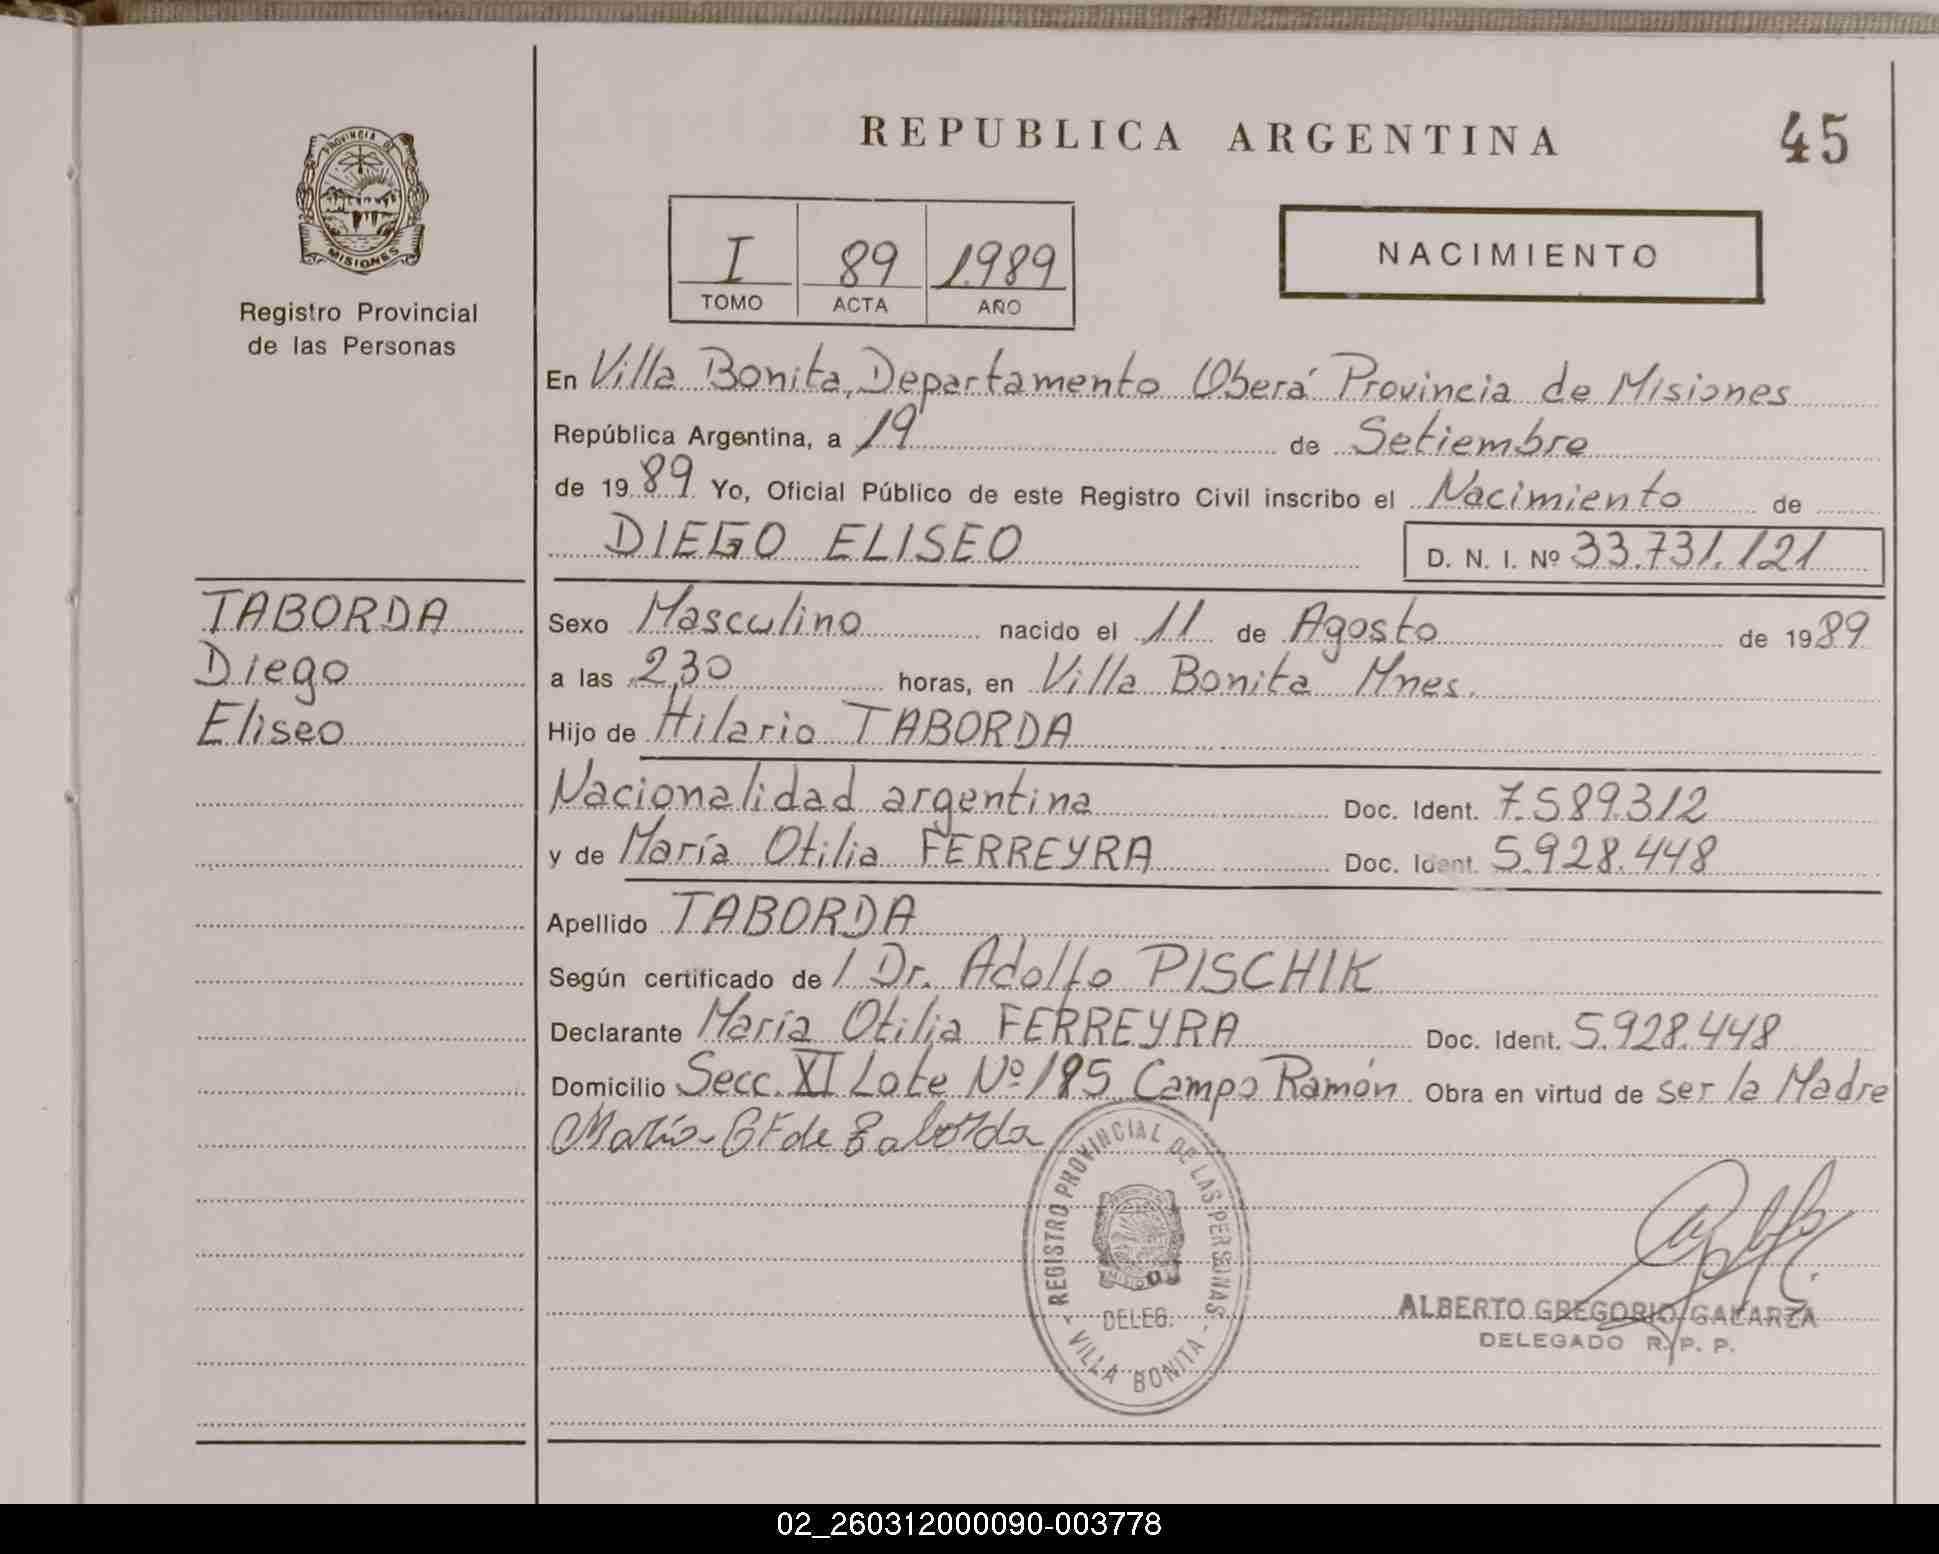 PROVINCIA DE
MISIONES
Registro Provincial
de las Personas
REPUBLICA ARGENTINA
45
I 89 1989
TOMO ACTA AÑO
NACIMIENTO
En Villa Bonita, Departamento Oberá Provincia de Misiones
República Argentina, a 19 de Setiembre
de 1989 Yo, Oficial Público de este Registro Civil inscribo el Nacimiento de
DIEGO ELISEO D. N. I. Nº 33.731.121
TABORDA
Diego
Eliseo
Sexo Masculino nacido el 11 de Agosto de 1989
a las 2,30 horas, en Villa Bonita Mnes.
Hijo de Hilario TABORDA
Nacionalidad argentina Doc. Ident. 7.589.312
y de María Otilia FERREYRA Doc. Ident. 5.928.448
Apellido TABORDA
Según certificado de / Dr. Adolfo PISCHIK
Declarante María Otilia FERREYRA Doc. Ident. 5.928.448
Domicilio Secc. XI Lote Nº 185 Campo Ramón Obra en virtud de ser la Madre
María de Taborda
REGISTRO PROVINCIAL DE LAS PERSONAS
DELEG.
- VILLA BONITA -
ALBERTO GREGORIO GALARZA
DELEGADO R. P. P.
02_260312000090-003778